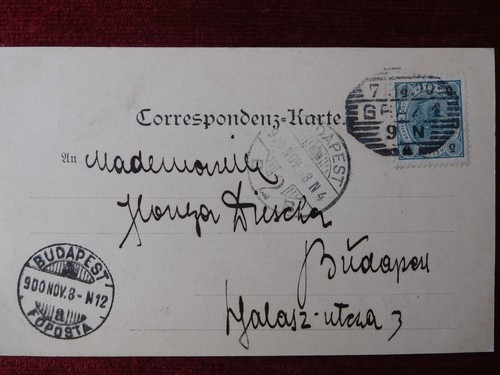 Correspondenz-Karte.
An Mademoiselle
Budapest
Halasz-utcza 3
BUDAPEST
900 NOV. 8 - N 12
a
FŐPOSTA
BUDAPEST
900 NOV. 8 N 4
7
9 N